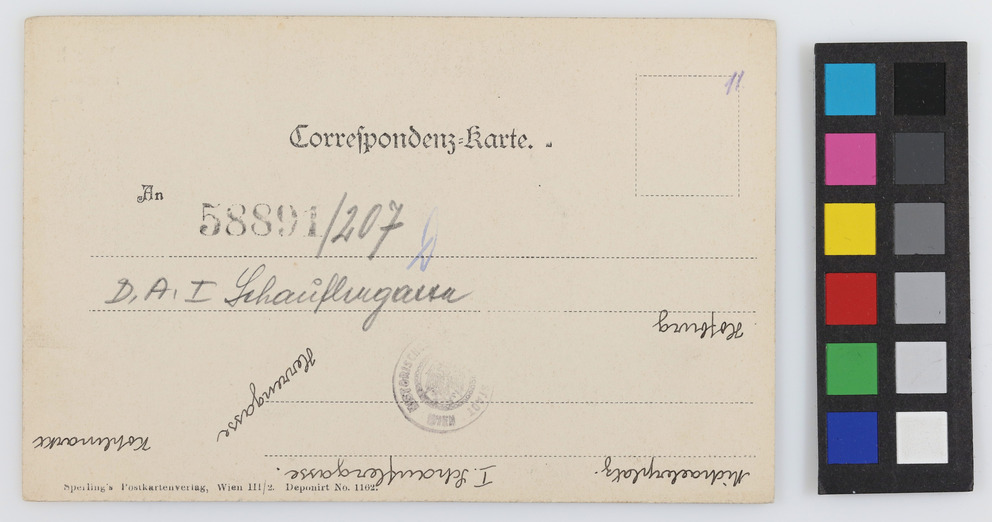 11
Correspondenz-Karte.
An
58891/207
D. A. I Schauflergasse
Hofburg
Herrengasse
Kohlmarkt
I. Schauflergasse.
Michaelerplatz.
HISTORISCH
STADT
WIEN
Sperling's Postkartenverlag, Wien III/2. Deponirt No. 1162.